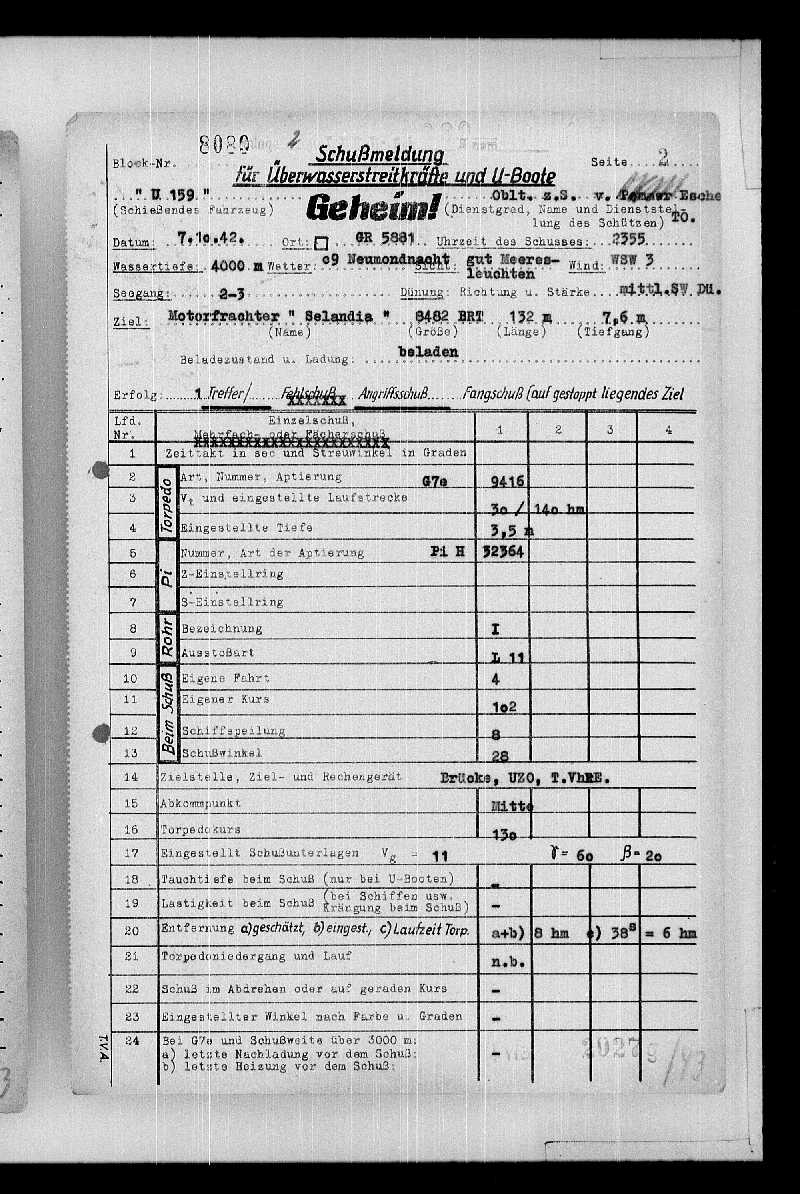 8080 2
Block-Nr. Schußmeldung Seite 2
für Überwasserstreitkräfte und U-Boote
" U 159 " Geheim! Oblt. z.S. v. Esche
(Schießendes Fahrzeug) (Dienstgrad, Name und Dienststel-
lung des Schützen) TO.
Datum: 7.10.42. Ort: GR 5881 Uhrzeit des Schusses: 2355
Wassertiefe: 4000 m Wetter: c9 Neumondnacht Sicht: gut Meeres-
leuchten Wind: WSW 3
Seegang: 2-3 Dünung: Richtung u. Stärke mittl.SW Dü.
Ziel: Motorfrachter " Selandia " 8482 BRT 132 m 7,6 m
(Name) (Größe) (Länge) (Tiefgang)
Beladezustand u. Ladung: beladen
Erfolg: 1 Treffer/ Fehlschuß Angriffsschuß Fangschuß (auf gestoppt liegendes Ziel
Lfd. Nr. Einzelschuß, Mehrfach- oder Fächerschuß 1 2 3 4
1 Zeittakt in sec und Streuwinkel in Graden
Torpedo
2 Art, Nummer, Aptierung G7e 9416
3 Vt und eingestellte Laufstrecke 30 / 140 hm
4 Eingestellte Tiefe 3,5 m
Pi
5 Nummer, Art der Aptierung Pi H 32364
6 Z-Einstellring
7 S-Einstellring
Rohr
8 Bezeichnung I
9 Ausstoßart L 11
Beim Schuß
10 Eigene Fahrt 4
11 Eigener Kurs 102
12 Schiffspeilung 8
13 Schußwinkel 28
14 Zielstelle, Ziel- und Rechengerät Brücke, UZO, T.VhRE.
15 Abkommpunkt Mitte
16 Torpedokurs 130
17 Eingestellt Schußunterlagen Vg = 11 γ= 60 β= 20
18 Tauchtiefe beim Schuß (nur bei U-Booten) -
19 Lastigkeit beim Schuß (bei Schiffen usw. Krängung beim Schuß) -
20 Entfernung a)geschätzt, b)eingest., c)Laufzeit Torp. a+b) 8 hm c) 38s = 6 hm
21 Torpedoniedergang und Lauf n.b.
22 Schuß im Abdrehen oder auf geraden Kurs -
23 Eingestellter Winkel nach Farbe u. Graden -
24 Bei G7e und Schußweite über 3000 m:
a) letzte Nachladung vor dem Schuß: -
b) letzte Heizung vor dem Schuß:
T.V.A.
2027 9/43